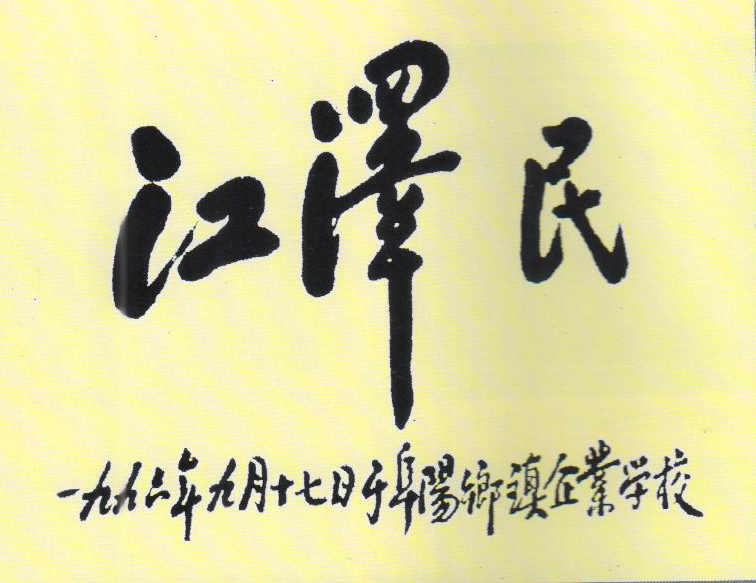 江澤民
一九九六年九月十七日于阜陽鄉鎮企業学校